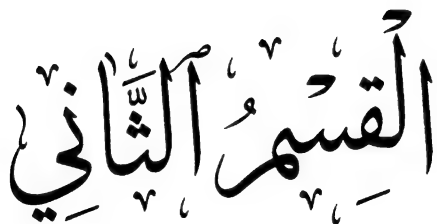 الْقِسْمُ ٱلثَّانِي